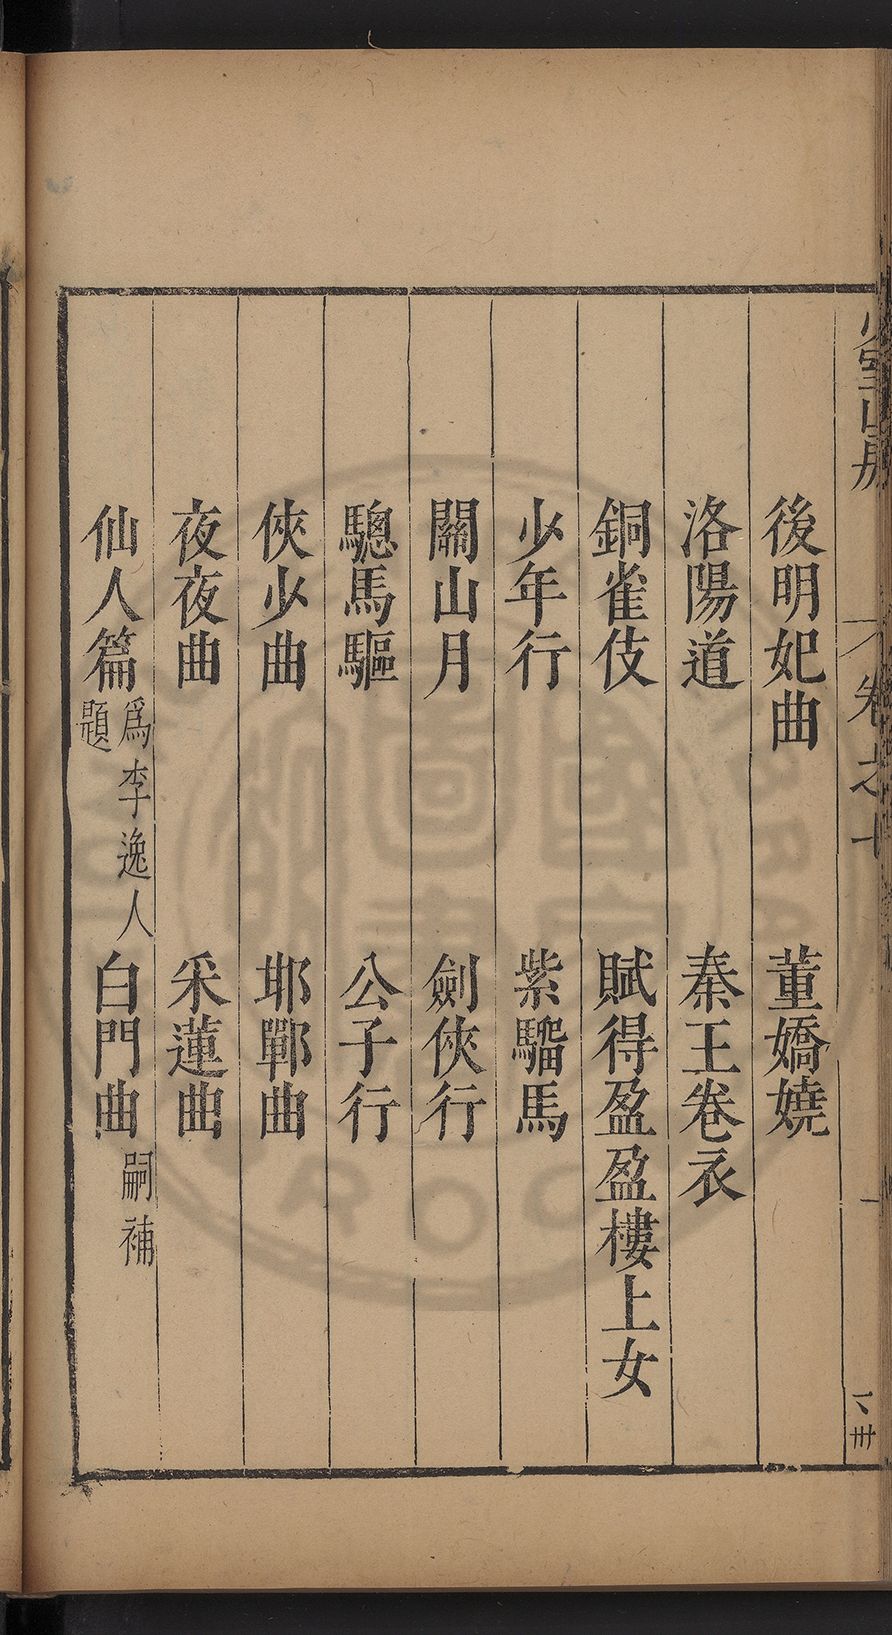 卷之十
後明妃曲　董嬌嬈
洛陽道　秦王卷衣
銅雀伎　賦得盈盈樓上女
少年行　紫騮馬
關山月　劍俠行
驄馬驅　公子行
俠少曲　邯鄲曲
夜夜曲　采蓮曲
仙人篇　爲李逸人題　白門曲　嗣補